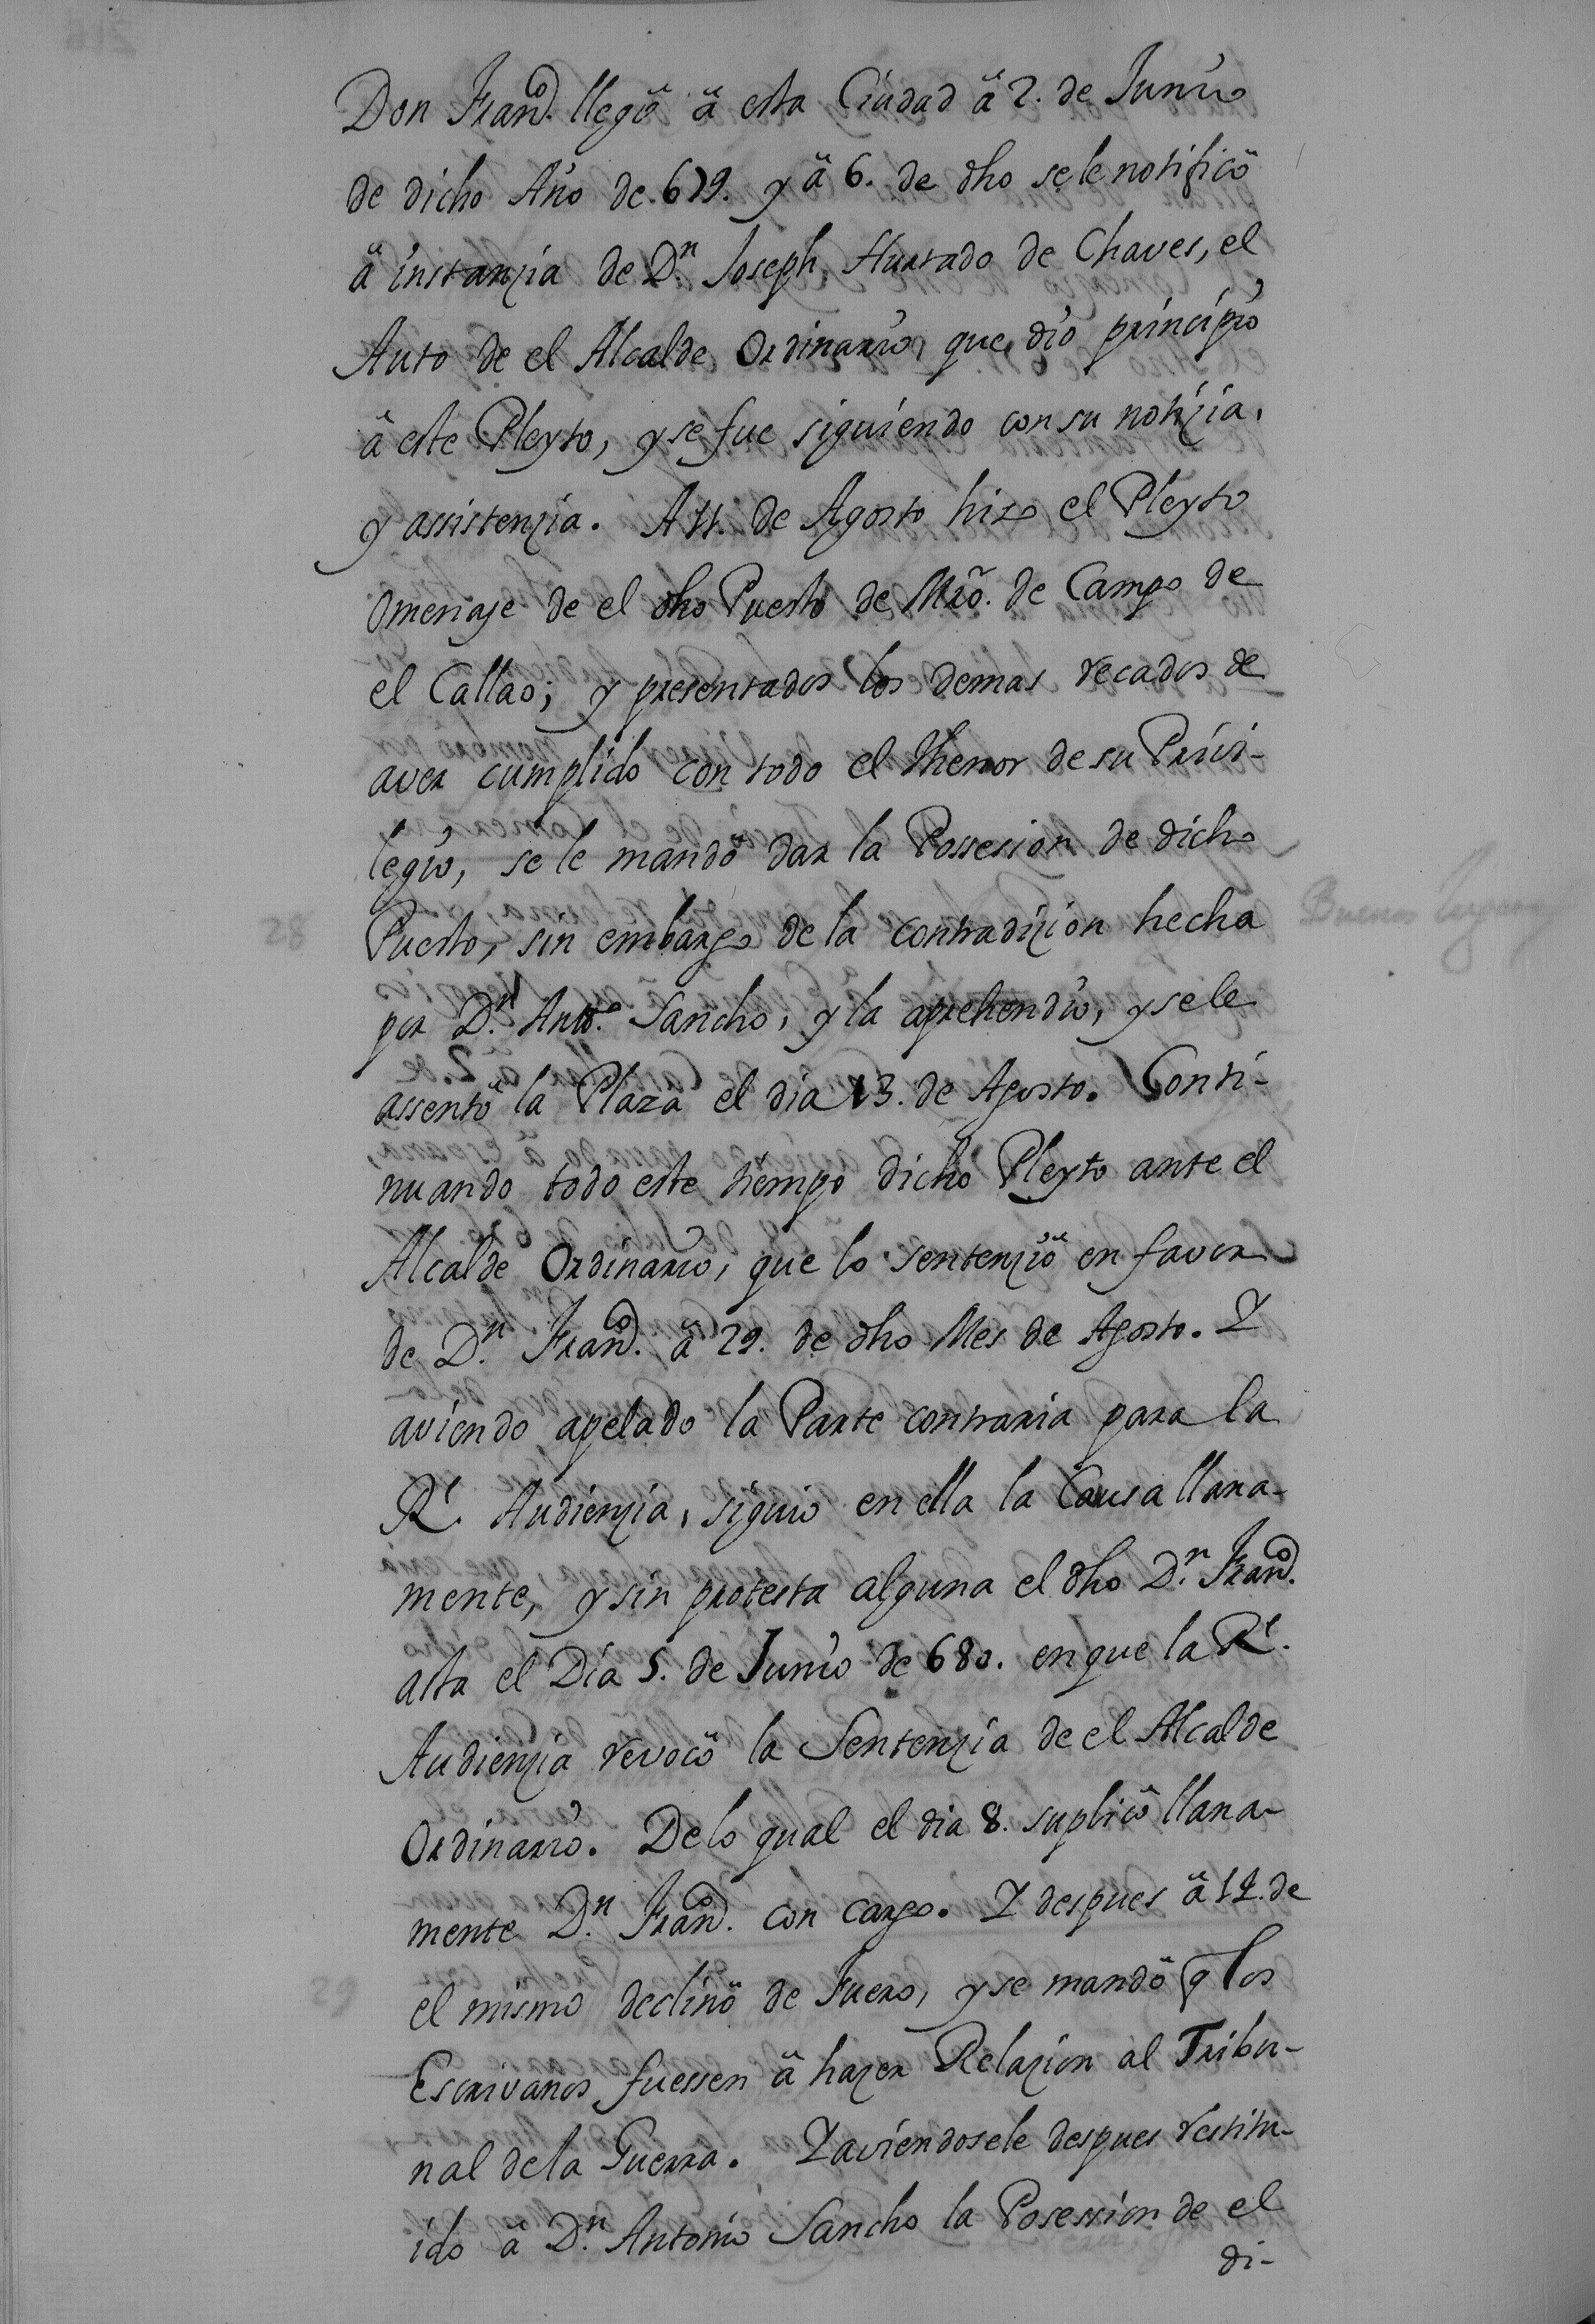 Don Fran.co llegô â esta Ciudad â 2. de Junio
de dicho Año de 679. y â 6. de dho se le notificô
â instanzia de D.n Joseph Hurtado de Chaves, el
Auto de el Alcalde Ordinario, que dio principio
â este Pleyto, y se fue siguiendo con su notizia,
y assistenzia. A 11. de Agosto hizo el Pleyto
Omenaje de el dho Puesto de Mr̃o. de Campo de
el Callao; y presentados los demas recados de
aver cumplido con todo el thenor de su Privi-
legio, se le mandô dar la Possesion de dicho
28 Puesto, sin embargo de la contradizion hecha Buenos
por D.n Anto. Sancho, y la aprehendio, y se le
assentô la Plaza el dia 13. de Agosto. Conti-
nuando todo este tiempo dicho Pleyto ante el
Alcalde Ordinario, que lo sentenziô en favor
de D.n Fran.co â 29. de dho Mes de Agosto. Y
aviendo apelado la Parte contraria para la
R.l Audienzia, siguio en ella la Causa llana-
mente, y sin protesta alguna el dho D.n Fran.co
asta el Dia 5. de Junio de 680. en que la R.l
Audienzia revocô la Sentenzia de el Alcalde
Ordinario. De lo qual el dia 8. suplicô llana-
mente D.n Fran.co con cargo. Y despues â 12. de
29 el mismo declinô de Fuero, y se mandô q los
Escrivanos fuessen â hazer Relazion al Tribu-
nal de la Guerra. Y aviendosele despues restitu-
ido â D.n Antonio Sancho la Posession de el
di-